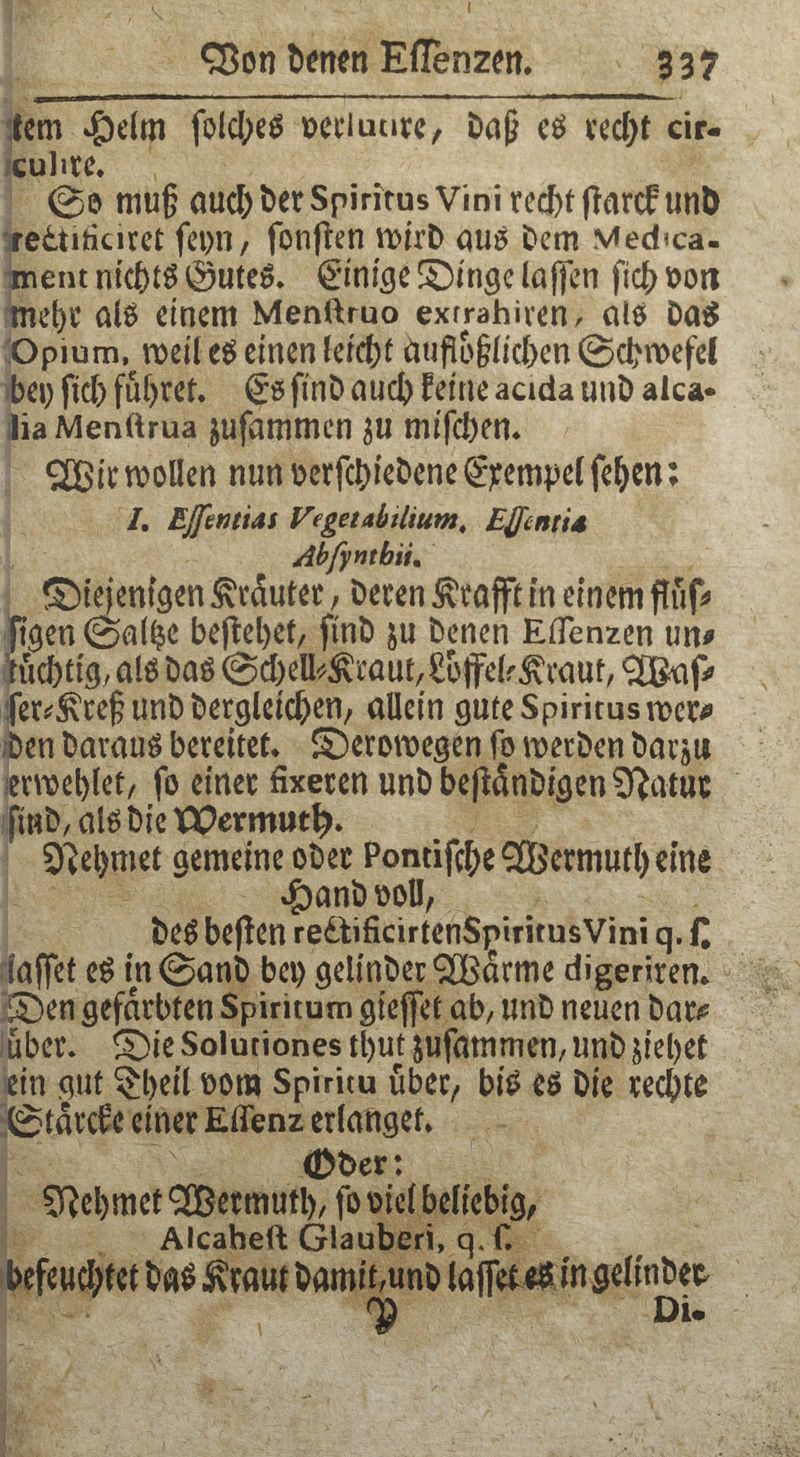 Von denen Essenzen. 337
tem Helm solches verlutire, daß es recht cir-
culire.
So muß auch der Spiritus Vini recht starck und
rectificiret seyn, sonsten wird aus dem Medica-
ment nichts Gutes. Einige Dinge lassen sich von
mehr als einem Menstruo extrahiren, als das
Opium, weil es einen leicht auflößlichen Schwefel
bey sich führet. Es sind auch keine acida und alca-
lia Menstrua zusammen zu mischen.
Wir wollen nun verschiedene Exempel sehen:
I. Essentias Vegetabilium. Essentia
Absynthii.
Diejenigen Kräuter, deren Krafft in einem flüs-
sigen Saltze bestehet, sind zu denen Essenzen un-
tüchtig, als das Schell-Kraut, Löffel-Kraut, Was-
ser-Kreß und dergleichen, allein gute Spiritus wer-
den daraus bereitet. Derowegen so werden darzu
erwehlet, so einer fixeren und beständigen Natur
sind, als die Wermuth.
Nehmet gemeine oder Pontische Wermuth eine
Hand voll,
des besten rectificirten Spiritus Vini q. s.
lasset es in Sand bey gelinder Wärme digeriren.
Den gefärbten Spiritum giesset ab, und neuen dar-
über. Die Solutiones thut zusammen, und ziehet
ein gut Theil vom Spiritu über, bis es die rechte
Stärcke einer Essenz erlanget.
Oder:
Nehmet Wermuth, so viel beliebig,
Alcahest Glauberi, q. s.
befeuchtet das Kraut damit, und lasset es in gelinder
Y Di-